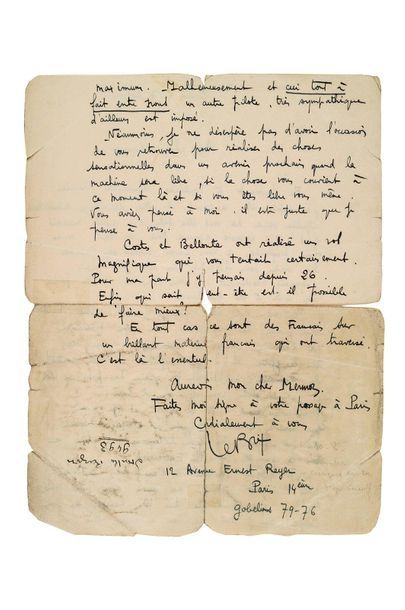 maximum. Malheureusement et ceci tout à
fait entre nous un autre pilote, très sympathique
d'ailleurs est imposé.
Néanmoins, je ne désespère pas d'avoir l'occasion
de vous retrouver pour réaliser des choses
sensationnelles dans un avenir prochain quand la
machine sera libre, si la chose vous convient à
ce moment là et si vous êtes libre vous même.
Vous aviez pensé à moi. il est juste que je
pense à vous.
Costes et Bellonte ont réalisé un vol
magnifique qui vous tentait certainement.
Pour ma part j'y pensais depuis 26.
Enfin qui sait peut-être est-il possible
de "faire mieux"!
En tout cas ce sont des Français sur
un brillant matériel français qui ont traversé.
C'est là l'essentiel.
Aurevoir mon cher Mermoz.
Faites moi signe à votre passage à Paris
Cordialement à vous
Le Brix
12 Avenue Ernest Reyer
Paris 14ème
Gobelins 79-76